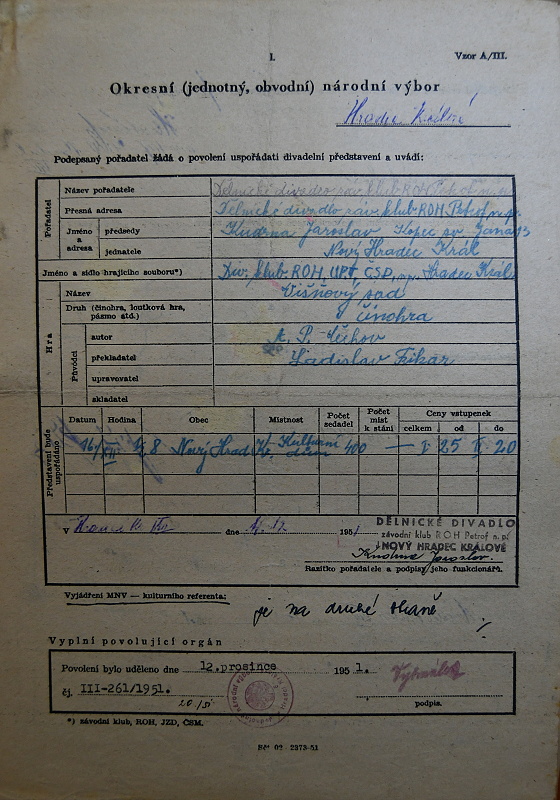 I.
Vzor A/III.
Okresní (jednotný, obvodní) národní výbor
Hradec Králové
Podepsaný pořadatel žádá o povolení uspořádati divadelní představení a uvádí:
Pořadatel
Název pořadatele Dělnické divadlo záv. klub ROH Petrof n.p.
Přesná adresa Dělnické divadlo záv. klub ROH Petrof n.p.
Jméno a adresa
předsedy Kudrna Jaroslav Kopec sv. Jana 13
jednatele Nový Hradec Král
Jméno a sídlo hrajícího souboru*) klub ROH, ČSD, Hradec Král
Hra
Název Višňový sad
Druh (činohra, loutková hra, pásmo atd.) činohra
Původci
autor A. P. Čechov
překladatel Ladislav Fikar
upravovatel
skladatel
Představení bude uspořádáno
Datum Hodina Obec Místnost Počet sedadel Počet míst k stání Ceny vstupenek
celkem od do
16/XII 8 Nový Hrad Kr. Kulturní dům 400 — I 25 II 20
V dne 195
DĚLNICKÉ DIVADLO
závodní klub ROH Petrof n. p.
NOVÝ HRADEC KRÁLOVÉ
Kudrna Jaroslav
Razítko pořadatele a podpisy jeho funkcionářů.
Vyjádření MNV — kulturního referenta:
je na druhé straně
Vyplní povolující orgán
Povolení bylo uděleno dne 12.prosince 195 1.
čj. III-261/1951.
podpis.
*) závodní klub, ROH, JZD, ČSM.